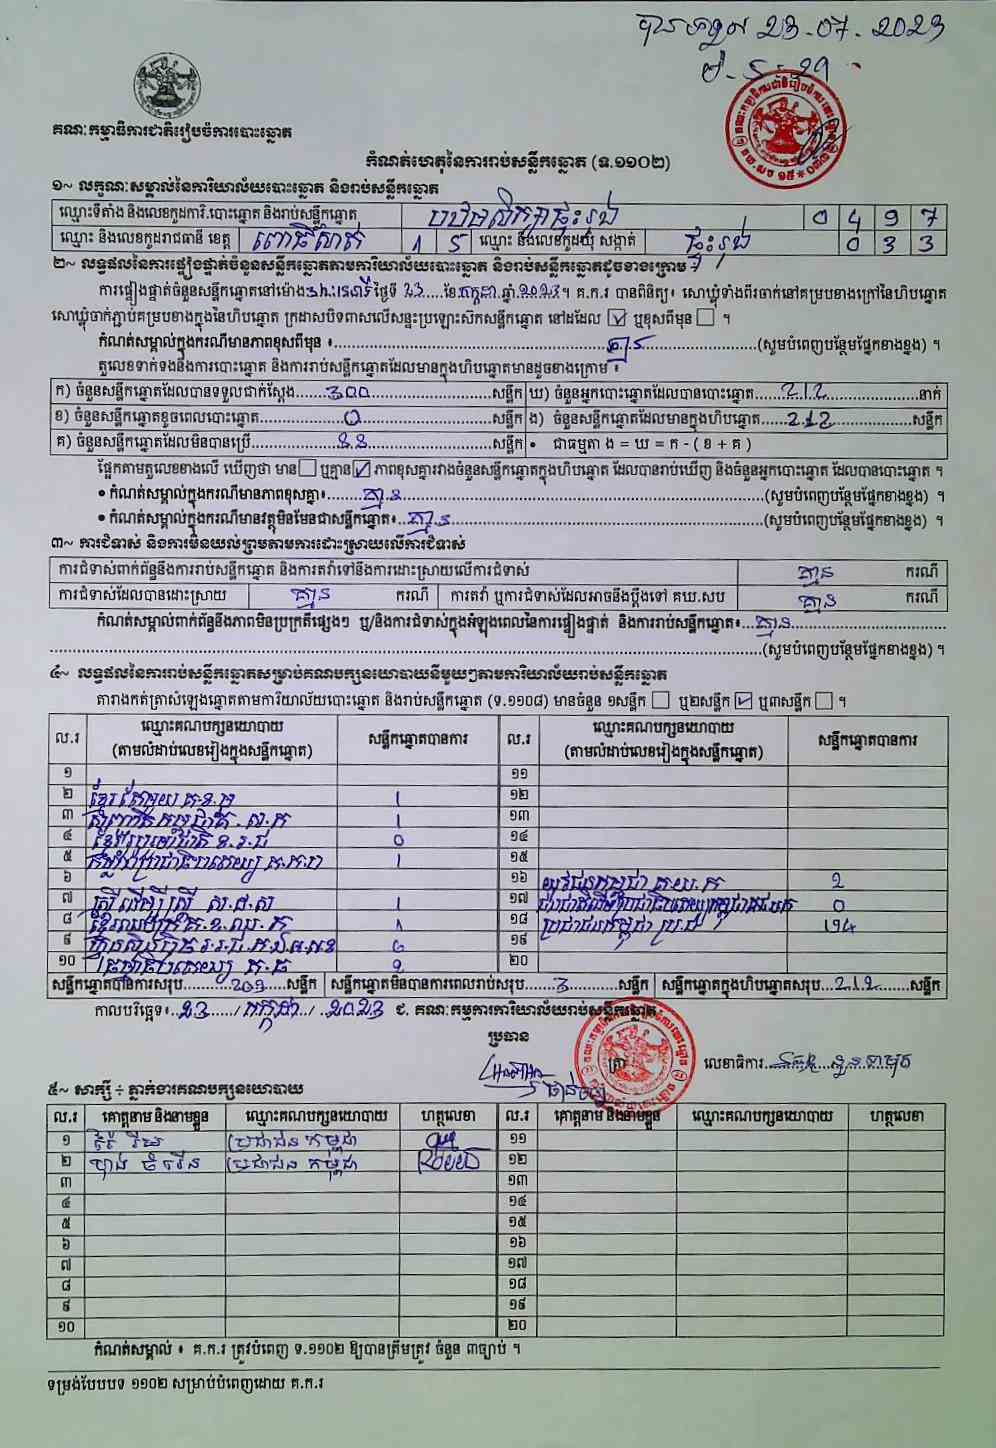 23-07-2023
គណៈកម្មាធិការជាតិរៀបចំការបោះឆ្នោត
កំណត់ហេតុនៃការរាប់សន្លឹកឆ្នោត (ទ.១១០២)
១~ លក្ខណៈសម្គាល់នៃការិយាល័យបោះឆ្នោត និងរាប់សន្លឹកឆ្នោត
ឈ្មោះទីតាំង និងលេខកូដការិ.បោះឆ្នោត និងរាប់សន្លឹកឆ្នោត បឋមសិក្សាផ្ទះរុង 0 4 9 7
ឈ្មោះ និងលេខកូដរាជធានី ខេត្ត ពោធិ៍សាត់ 1 5 ឈ្មោះ និងលេខកូដឃុំ សង្កាត់ ផ្ទះរុង 0 3 3
២~ លទ្ធផលនៃការផ្ទៀងផ្ទាត់ចំនួនសន្លឹកឆ្នោតតាមការិយាល័យបោះឆ្នោត និងរាប់សន្លឹកឆ្នោតដូចខាងក្រោម ៖
ការផ្ទៀងផ្ទាត់ចំនួនសន្លឹកឆ្នោតនៅម៉ោង ថ្ងៃទី 23 ខែ កក្កដា ឆ្នាំ 2023 ។ គ.ក.រ បានពិនិត្យ៖ សោឃ្លុំទាំងពីរចាក់នៅគម្របខាងក្រៅនៃហិបឆ្នោត
សោឃ្លុំចាក់ភ្ជាប់គម្របខាងក្នុងនៃហិបឆ្នោត ក្រដាសបិទពាសលើសន្ទះប្រឡោះស៊កសន្លឹកឆ្នោត នៅដដែល ☑ ឬខុសពីមុន ☐ ។
កំណត់សម្គាល់ក្នុងករណីមានភាពខុសពីមុន ៖ គ្មាន (សូមបំពេញបន្ថែមផ្នែកខាងខ្នង) ។
តួលេខទាក់ទងនឹងការបោះឆ្នោត និងការរាប់សន្លឹកឆ្នោតដែលមានក្នុងហិបឆ្នោតមានដូចខាងក្រោម ៖
ក) ចំនួនសន្លឹកឆ្នោតដែលបានទទួលជាក់ស្តែង 300 សន្លឹក ឃ) ចំនួនអ្នកបោះឆ្នោតដែលបានបោះឆ្នោត 212 នាក់
ខ) ចំនួនសន្លឹកឆ្នោតខូចពេលបោះឆ្នោត 0 សន្លឹក ង) ចំនួនសន្លឹកឆ្នោតដែលមានក្នុងហិបឆ្នោត 212 សន្លឹក
គ) ចំនួនសន្លឹកឆ្នោតដែលមិនបានប្រើ 88 សន្លឹក • ជាធម្មតា ង = ឃ = ក - ( ខ + គ )
ផ្អែកតាមតួលេខខាងលើ ឃើញថា មាន ☐ ឬគ្មាន ☑ ភាពខុសគ្នារវាងចំនួនសន្លឹកឆ្នោតក្នុងហិបឆ្នោត ដែលបានរាប់ឃើញ និងចំនួនអ្នកបោះឆ្នោត ដែលបានបោះឆ្នោត ។
• កំណត់សម្គាល់ក្នុងករណីមានភាពខុសគ្នា៖ គ្មាន (សូមបំពេញបន្ថែមផ្នែកខាងខ្នង) ។
• កំណត់សម្គាល់ក្នុងករណីមានវត្ថុមិនមែនជាសន្លឹកឆ្នោត៖ គ្មាន (សូមបំពេញបន្ថែមផ្នែកខាងខ្នង) ។
៣~ ការជំទាស់ និងការមិនយល់ព្រមតាមការដោះស្រាយលើការជំទាស់
ការជំទាស់ពាក់ព័ន្ធនឹងការរាប់សន្លឹកឆ្នោត និងការតវ៉ាទៅនឹងការដោះស្រាយលើការជំទាស់ គ្មាន ករណី
ការជំទាស់ដែលបានដោះស្រាយ គ្មាន ករណី ការតវ៉ា ឬការជំទាស់ដែលអាចនឹងប្តឹងទៅ គឃ.សប គ្មាន ករណី
កំណត់សម្គាល់ពាក់ព័ន្ធនឹងភាពមិនប្រក្រតីផ្សេងៗ ឬ/និងការជំទាស់ក្នុងអំឡុងពេលនៃការផ្ទៀងផ្ទាត់ និងការរាប់សន្លឹកឆ្នោត៖ គ្មាន
(សូមបំពេញបន្ថែមផ្នែកខាងខ្នង) ។
៤~ លទ្ធផលនៃការរាប់សន្លឹកឆ្នោតសម្រាប់គណបក្សនយោបាយនីមួយៗតាមការិយាល័យរាប់សន្លឹកឆ្នោត
តារាងកត់ត្រាសំឡេងឆ្នោតតាមការិយាល័យបោះឆ្នោត និងរាប់សន្លឹកឆ្នោត (ទ.១១០៨) មានចំនួន ១សន្លឹក ☐ ឬ២សន្លឹក ☑ ឬ៣សន្លឹក ☐ ។
ល.រ ឈ្មោះគណបក្សនយោបាយ (តាមលំដាប់លេខរៀងក្នុងសន្លឹកឆ្នោត) សន្លឹកឆ្នោតបានការ ល.រ ឈ្មោះគណបក្សនយោបាយ (តាមលំដាប់លេខរៀងក្នុងសន្លឹកឆ្នោត) សន្លឹកឆ្នោតបានការ
១ ១១
២ ខ្មែរតែមួយ គ.ខ.ម 1 ១២
៣ 1 ១៣
៤ 0 ១៤
៥ 1 ១៥
៦ ១៦ យុវជនកម្ពុជា គ.យ.ក 2
៧ 1 ១៧ 0
៨ 1 ១៨ ប្រជាជនកម្ពុជា ប្រ.ជ 194
៩ ១៩
១០ 2 ២០
សន្លឹកឆ្នោតបានការសរុប 209 សន្លឹក សន្លឹកឆ្នោតមិនបានការពេលរាប់សរុប 3 សន្លឹក សន្លឹកឆ្នោតក្នុងហិបឆ្នោតសរុប 212 សន្លឹក
កាលបរិច្ឆេទ៖ 23 / កក្កដា / 2023 ជ. គណៈកម្មការការិយាល័យរាប់សន្លឹកឆ្នោត
ប្រធាន
ត្រា លេខាធិការ
៥~ សាក្សី ÷ ភ្នាក់ងារគណបក្សនយោបាយ
ល.រ គោត្តនាម និងនាមខ្លួន ឈ្មោះគណបក្សនយោបាយ ហត្ថលេខា ល.រ គោត្តនាម និងនាមខ្លួន ឈ្មោះគណបក្សនយោបាយ ហត្ថលេខា
១ ប្រជាជនកម្ពុជា ១១
២ ប្រជាជនកម្ពុជា ១២
៣ ១៣
៤ ១៤
៥ ១៥
៦ ១៦
៧ ១៧
៨ ១៨
៩ ១៩
១០ ២០
កំណត់សម្គាល់ ៖ គ.ក.រ ត្រូវបំពេញ ទ.១១០២ ឱ្យបានត្រឹមត្រូវ ចំនួន ៣ច្បាប់ ។
ទម្រង់បែបបទ ១១០២ សម្រាប់បំពេញដោយ គ.ក.រ